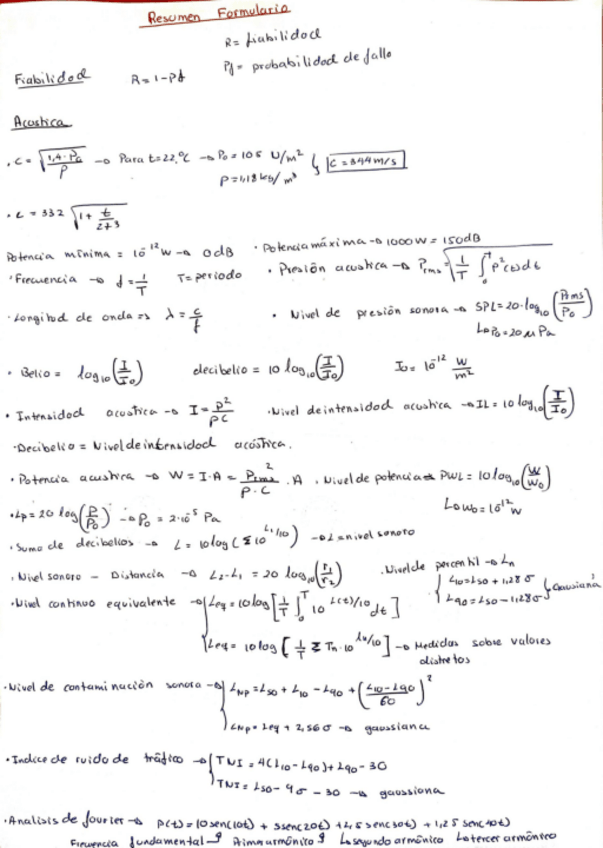 Resumen Formulario
R = fiabilidad
Fiabilidad R = 1 - Pf Pf = probabilidad de fallo
Acustica
· C = √(1,4·P₀/ρ) → Para t=22ºC → P₀ = 10⁵ N/m² C = 344 m/s
ρ = 1,18 kg/m³
· c = 332 √(1 + t/273)
Potencia mínima = 10⁻¹² W → 0dB · Potencia máxima → 1000W = 150dB
· Frecuencia → f = 1/T T = periodo · Presión acustica → Prms = √(1/T ∫₀ᵀ p²(t)dt)
· Longitud de onda => λ = c/f · Nivel de presión sonora → SPL = 20·log₁₀(Prms/P₀)
↳ P₀ = 20 μPa
· Belio = log₁₀(I/I₀) decibelio = 10 log₁₀(I/I₀) I₀ = 10⁻¹² W/m²
· Intensidad acustica → I = P²/ρC · Nivel de intensidad acustica → IL = 10 log₁₀(I/I₀)
· Decibelio = Nivel de intensidad acústica.
· Potencia acustica → W = I·A = Prms²/ρ·C · A · Nivel de potencia → PWL = 10 log₁₀(W/W₀)
↳ W₀ = 10⁻¹² W
· Lp = 20 log(P/P₀) → P₀ = 2·10⁻⁵ Pa
· Suma de decibelios → L = 10 log(Σ 10^(Li/10)) → L = nivel sonoro
· Nivel sonoro - Distancia → L₂-L₁ = 20 log₁₀(r₁/r₂) · Nivel de percentil → Ln
L10 = L50 + 1,28 σ
L90 = L50 - 1,28 σ Gaussiana
· Nivel continuo equivalente → Leq = 10 log [1/T ∫₀ᵀ 10^(L(t)/10) dt]
Leq = 10 log [1/T Σ Tn·10^(Ln/10)] → Medidas sobre valores
distretos
· Nivel de contaminación sonora → LNP = L50 + L10 - L90 + ((L10-L90)/60)²
LNP = Leq + 2,56 σ → gaussiana
· Indice de ruido de tráfico → TNI = 4(L10-L90) + L90 - 30
TNI = L50 - 9 σ - 30 → gaussiana
· Analisis de fourier → P(t) = 10 sen(10t) + 5 sen(20t) + 2,5 sen(30t) + 1,25 sen(40t)
Frecuencia fundamental armónico ↳ segundo armónico ↳ tercer armónico